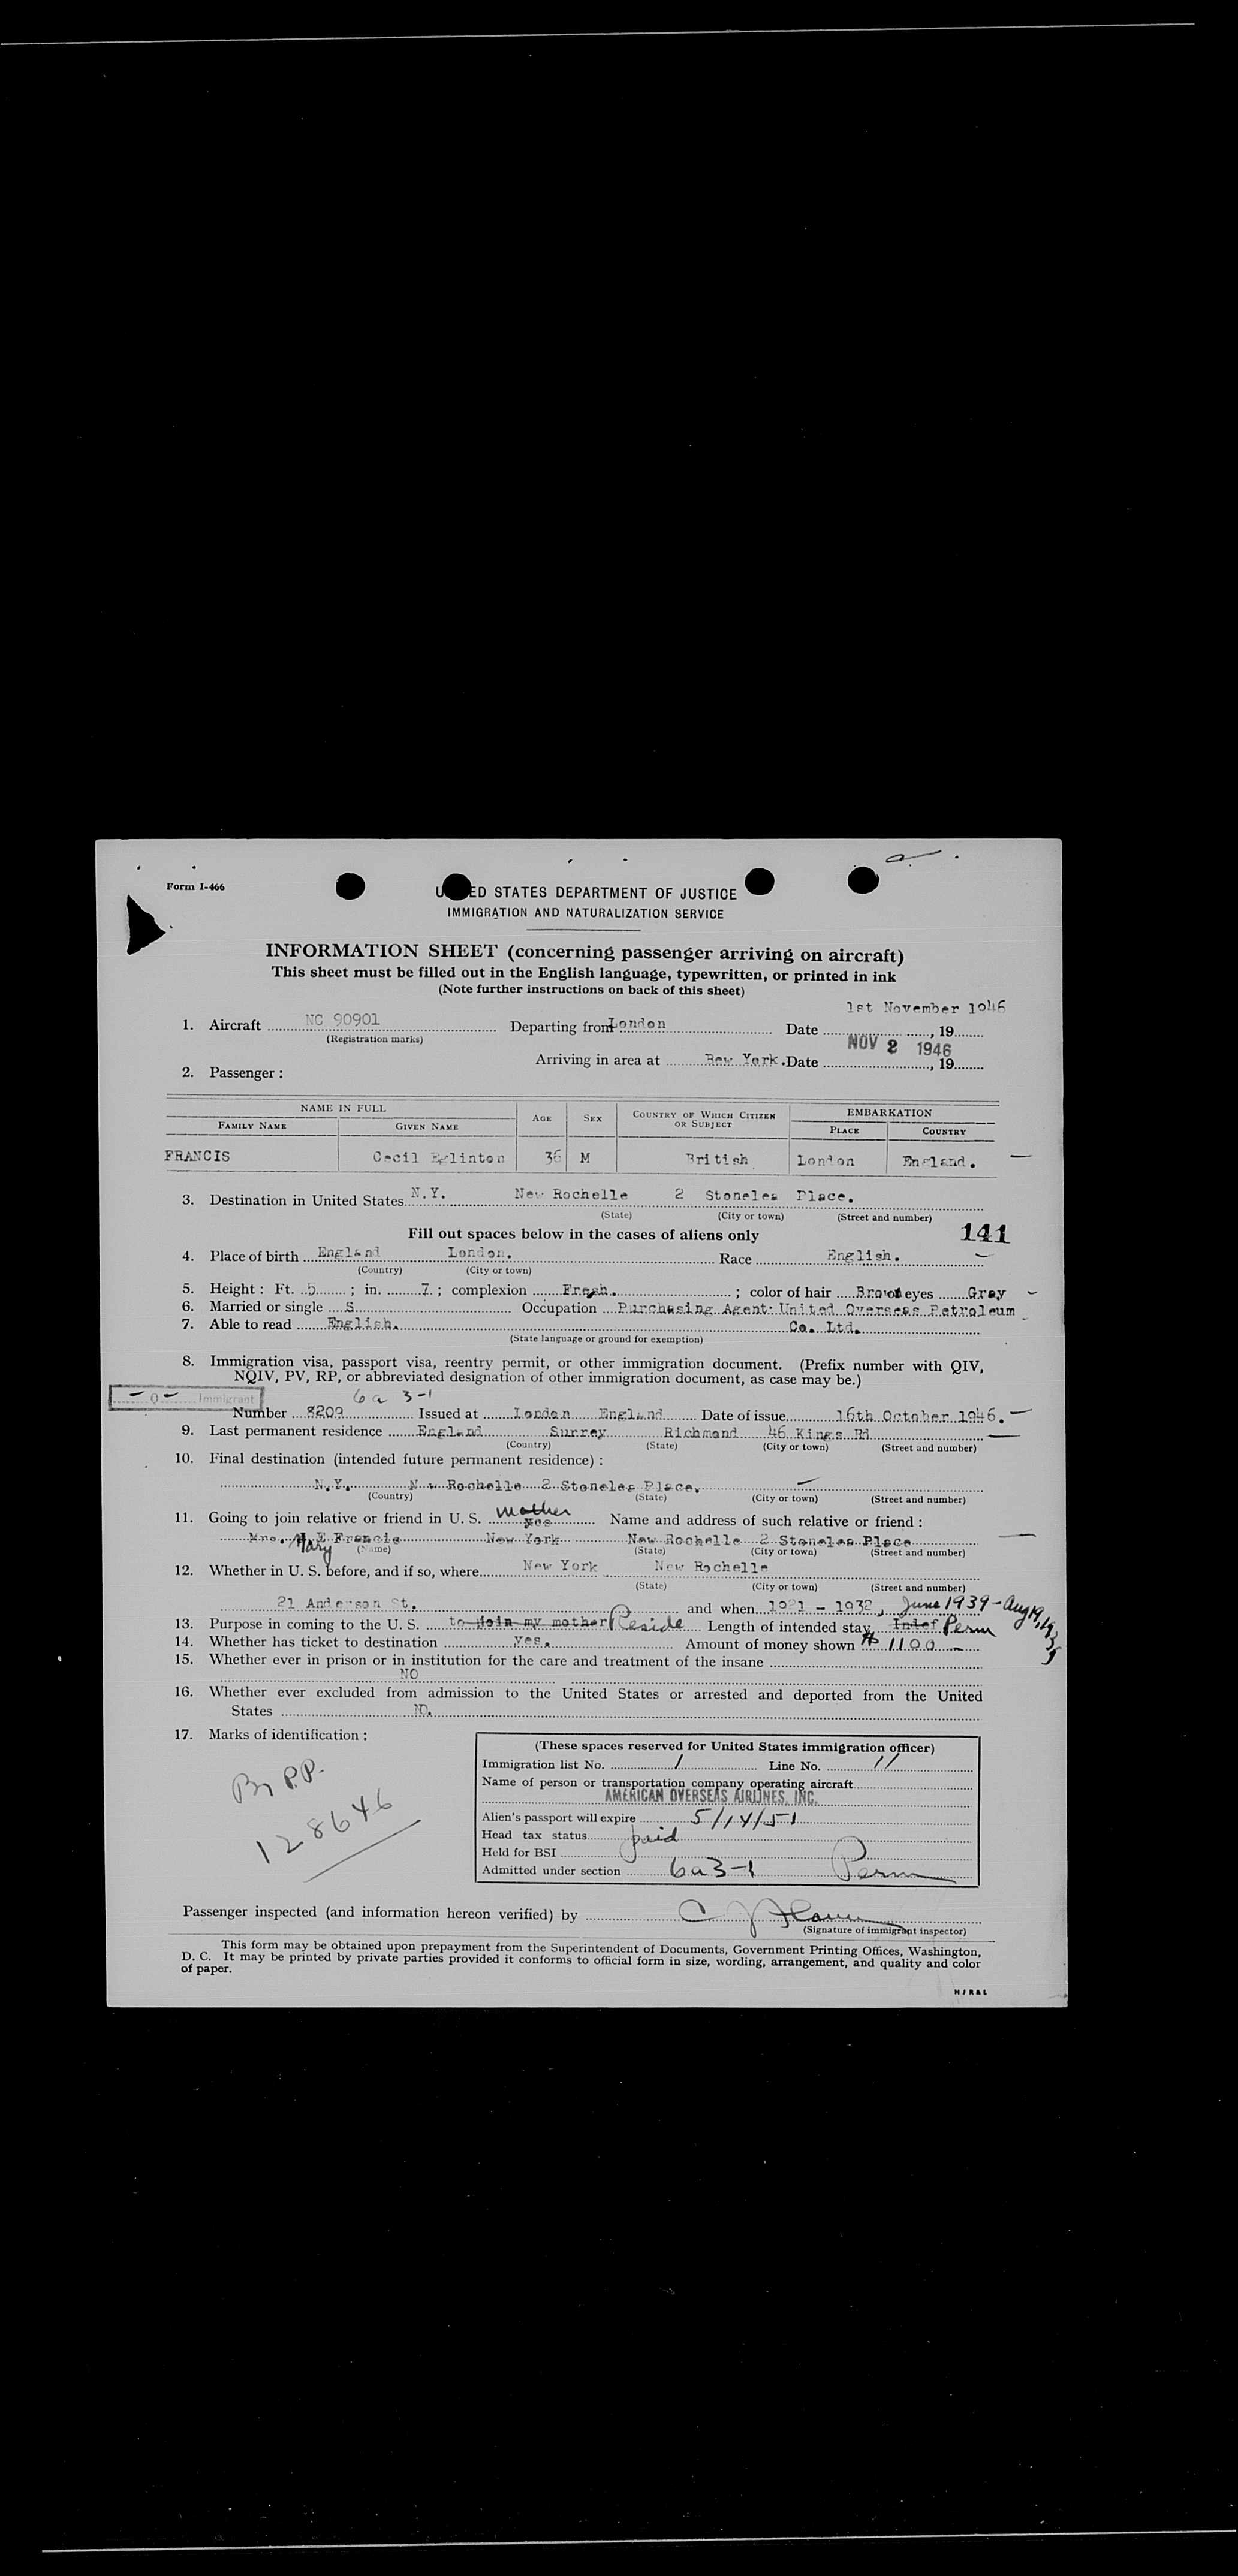 Form I-466
ED STATES DEPARTMENT OF JUSTICE
IMMIGRATION AND NATURALIZATION SERVICE
INFORMATION SHEET (concerning passenger arriving on aircraft)
This sheet must be filled out in the English language, typewritten, or printed in ink
(Note further instructions on back of this sheet)
1st November 1946
1. Aircraft NC 90901 Departing from London Date , 19
(Registration marks)
NOV 2 1946
Arriving in area at New York. Date , 19
2. Passenger :
NAME IN FULL AGE SEX COUNTRY OF WHICH CITIZEN OR SUBJECT EMBARKATION
FAMILY NAME GIVEN NAME PLACE COUNTRY
FRANCIS Cecil Eglinton 36 M British London England.
3. Destination in United States N.Y. New Rochelle 2 Stonelea Place.
(State) (City or town) (Street and number)
Fill out spaces below in the cases of aliens only 141
4. Place of birth England London. Race English.
(Country) (City or town)
5. Height : Ft. 5 ; in. 7 ; complexion Fresh. ; color of hair Brown eyes Gray
6. Married or single S Occupation Purchasing Agent: United Overseas Petroleum
7. Able to read English. Co. Ltd.
(State language or ground for exemption)
8. Immigration visa, passport visa, reentry permit, or other immigration document. (Prefix number with QIV,
NQIV, PV, RP, or abbreviated designation of other immigration document, as case may be.)
Q Immigrant 6a 3-1
Number 8209 Issued at London England Date of issue 16th October 1946.
9. Last permanent residence England Surrey Richmond 46 Kings Rd
(Country) (State) (City or town) (Street and number)
10. Final destination (intended future permanent residence) :
N.Y. New Rochelle 2 Stonelea Place.
(Country) (State) (City or town) (Street and number)
mother
11. Going to join relative or friend in U. S. yes Name and address of such relative or friend :
Mrs. Mary E Francis New York New Rochelle 2 Stonelea Place
(Name) (State) (City or town) (Street and number)
12. Whether in U. S. before, and if so, where New York New Rochelle
(State) (City or town) (Street and number)
21 Anderson St. and when 1921 - 1932, June 1939 - Aug 19, 1939
13. Purpose in coming to the U. S. to join my mother Reside Length of intended stay Indef Perm
14. Whether has ticket to destination yes. Amount of money shown $ 1100
15. Whether ever in prison or in institution for the care and treatment of the insane
NO
16. Whether ever excluded from admission to the United States or arrested and deported from the United
States NO.
17. Marks of identification :
Br P.P.
128646
(These spaces reserved for United States immigration officer)
Immigration list No. 1 Line No. 11
Name of person or transportation company operating aircraft
AMERICAN OVERSEAS AIRLINES, INC.
Alien's passport will expire 5/14/51
Head tax status paid
Held for BSI
Admitted under section 6a3-1 Perm
Passenger inspected (and information hereon verified) by
(Signature of immigrant inspector)
This form may be obtained upon prepayment from the Superintendent of Documents, Government Printing Offices, Washington,
D. C. It may be printed by private parties provided it conforms to official form in size, wording, arrangement, and quality and color
of paper.
HJR&L